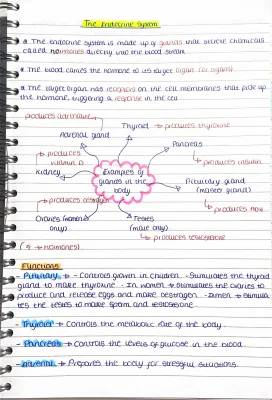 The Endocrine System
* The endocrine system is made up of glands that secrete chemicals
called hormones directly into the blood stream
* The blood carries the hormone to its target organ (or organs).
* The target organ has receptors on the cell membranes that pick up
the hormone, triggering a response in the cell
produces adrenaline
Adrenal gland
Thyroid → produces thyroxine
Pancreas
→ produces insulin
→ produces
vitamin D
Kidney
Examples of
glands in the
body
Pituitary gland
(master gland)
→ produces
produces oestrogen
Ovaries (women
only)
Testes
(male only)
→ produces testosterone
(→ hormones)
Functions
- Pituitary → - Controls growth in children - Stimulates the thyroid
gland to make thyroxine - In women → Stimulates the ovaries to
produce and release eggs and make oestrogen - In men → Stimula
tes the testes to make sperm and testosterone.
- Thyroid → Controls the metabolic rate of the body.
- Pancreas → Controls the levels of glucose in the blood
- Adrenal → Prepares the body for stressful situations.